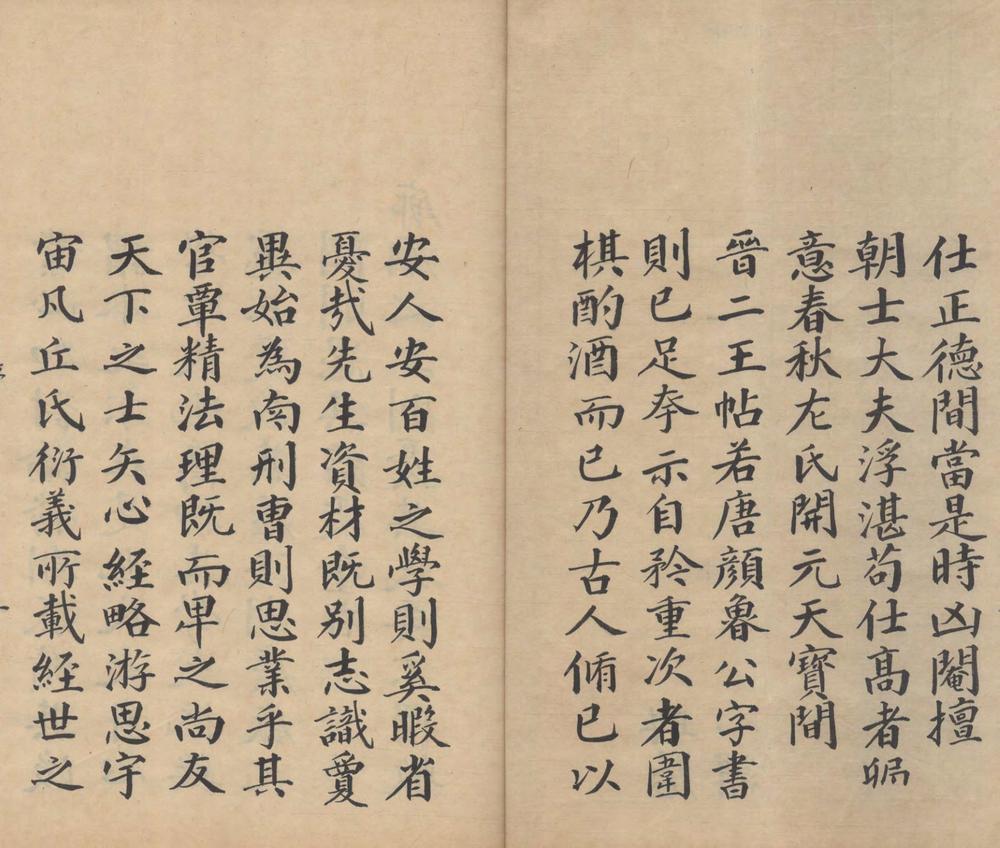 仕正德間當是時凶閹擅
朝士大夫浮湛苟仕高者
意春秋左氏開元天寶間
晉二王帖若唐顏魯公字書
則已足夸示自矜重次者圍
棋酌酒而已乃古人脩已以
安人安百姓之學則奚暇省
憂哉先生資材既別志識敻
異始為南刑曹則思業乎其
官覃精法理既而卑之尚友
天下之士矢心經略游思宇
宙凡丘氏衍義所載經世之